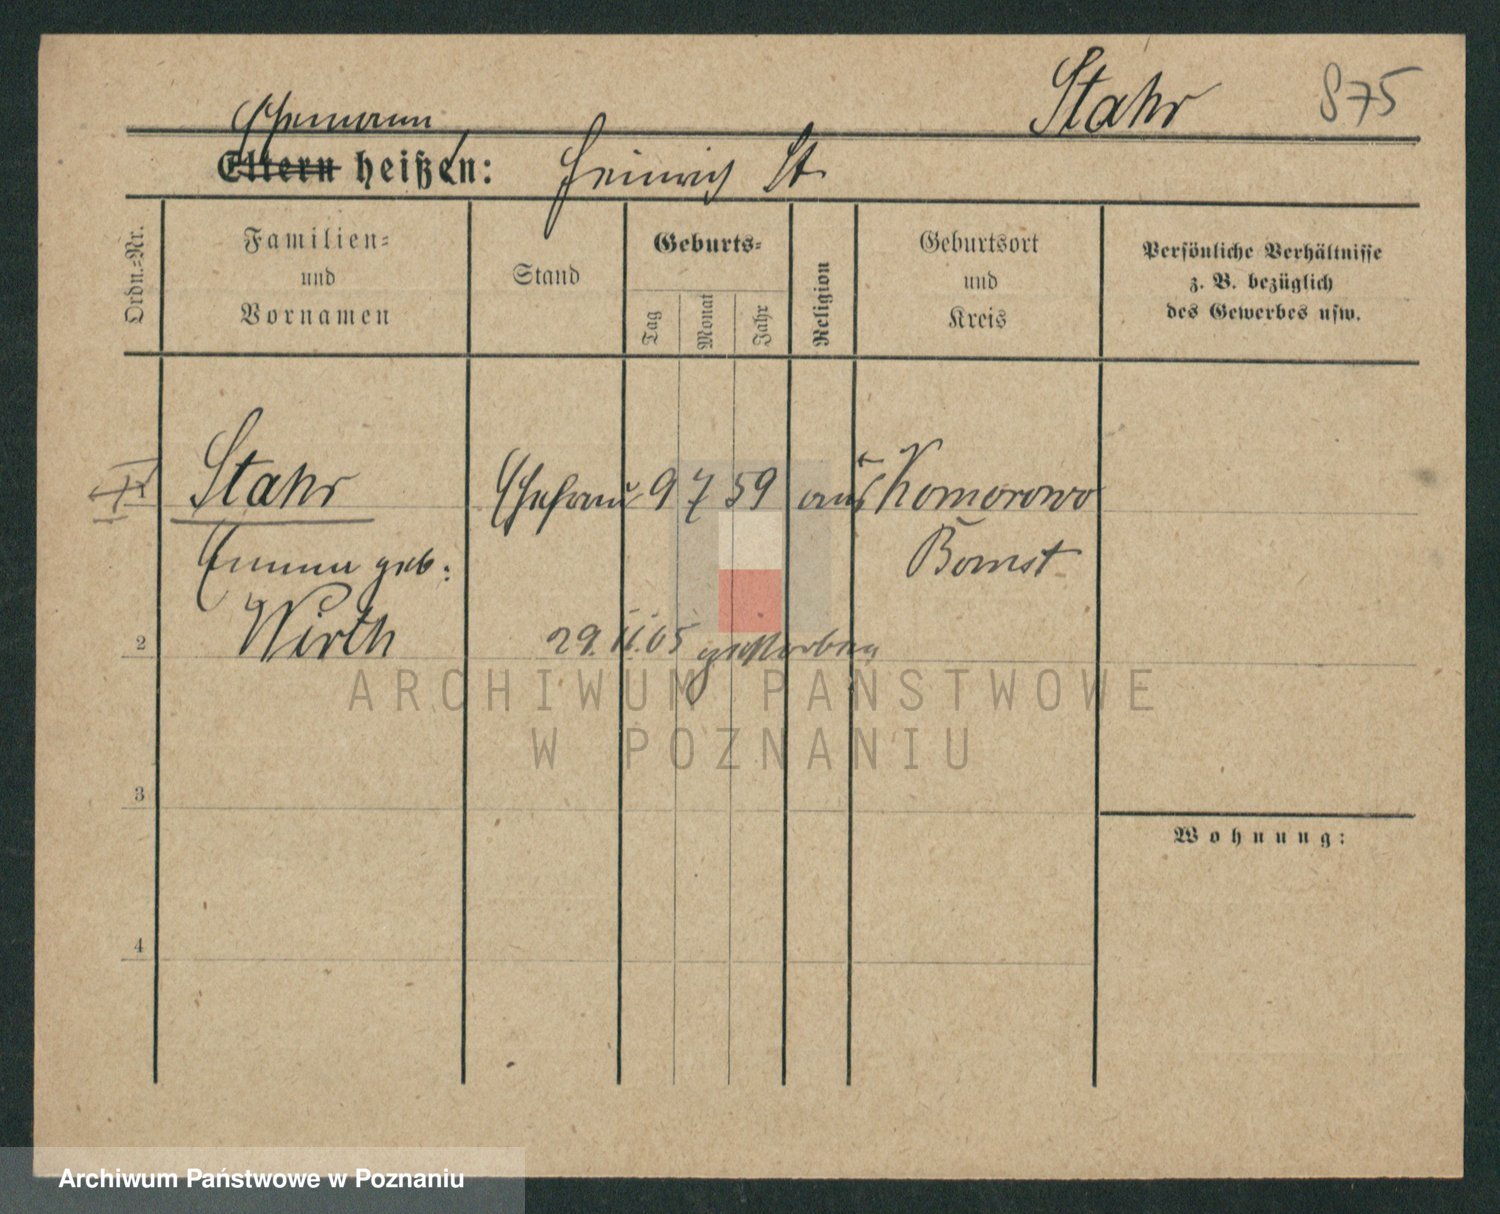 Stahr 875
Ehemann
Eltern heißen: Heinrich St.
Ordn.-Nr.
Familien-
und
Vornamen
Stand
Geburts-
Tag
Monat
Jahr
Religion
Geburtsort
und
Kreis
Persönliche Verhältnisse
z. B. bezüglich
des Gewerbes usw.
1 Stahr Ehefrau 9 7 59 Komorowo
Emma geb: Bomst
2 Wirth 29. 11. 05 gestorben
ARCHIWUM PAŃSTWOWE
W POZNANIU
3
Wohnung:
4
Archiwum Państwowe w Poznaniu